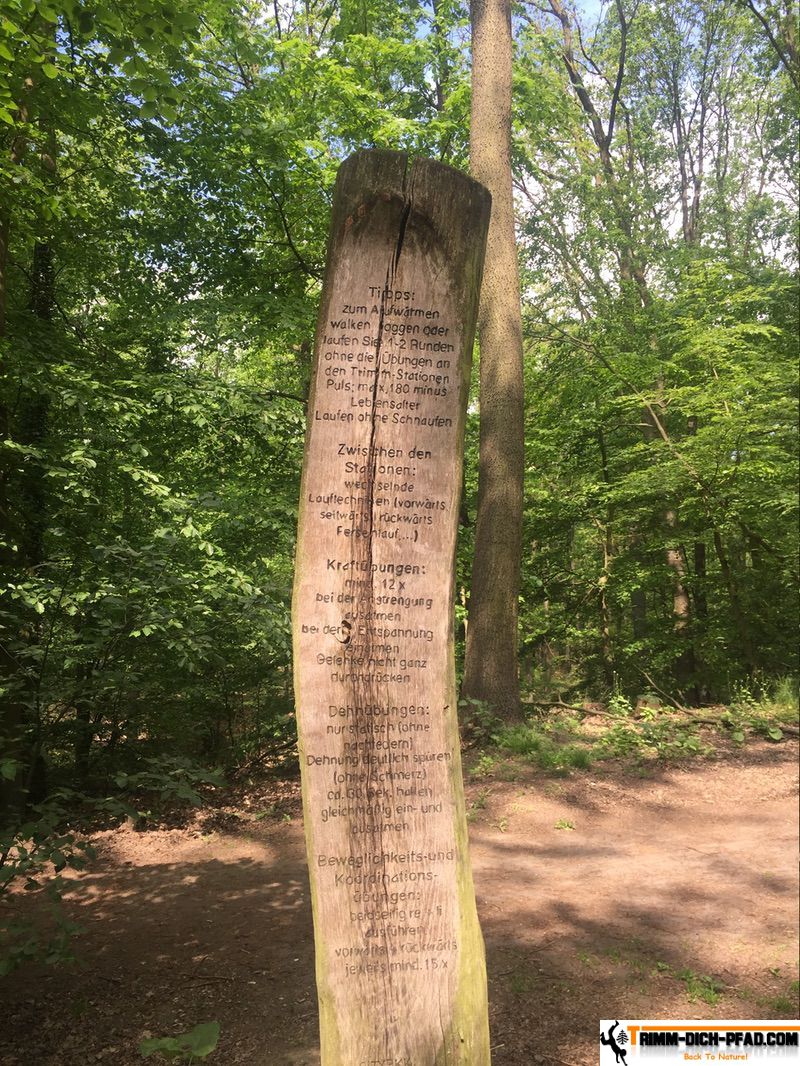 Tipps:
zum Aufwärmen
walken joggen oder
laufen Sie 1-2 Runden
ohne die Übungen an
den Trimm-Stationen
Puls: max. 180 minus
Lebensalter
Laufen ohne Schnaufen
Zwischen den
Stationen:
wechselnde
Lauftechniken (vorwärts
seitwärts rückwärts
Fersenlauf,...)
Kraftübungen:
mind. 12 x
bei der Anstrengung
ausatmen
bei der Entspannung
einatmen
Gelenke nicht ganz
durchdrücken
Dehnübungen:
nur statisch (ohne
nachfedern)
Dehnung deutlich spüren
(ohne Schmerz)
ca. 60 Sek. halten
gleichmäßig ein- und
ausatmen
Beweglichkeits-und
Koordinations-
übungen:
beidseitig re. + li
ausführen
vorwärts + rückwärts
jeweils mind. 15 x
TRIMM-DICH-PFAD.COM
Back To Nature!